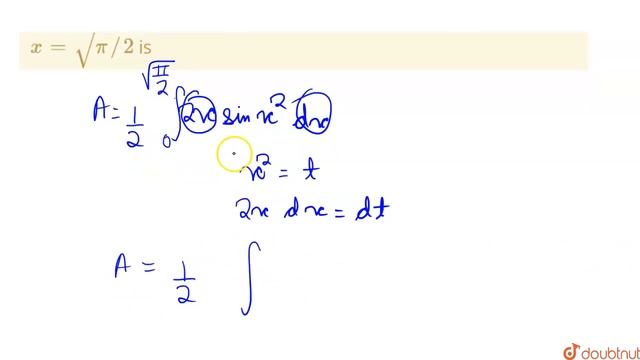 x = √π/2 is
A = 1/2 ∫₀^√(π/2) 2x sin x² dx
x² = t
2x dx = dt
A = 1/2 ∫
doubtnut